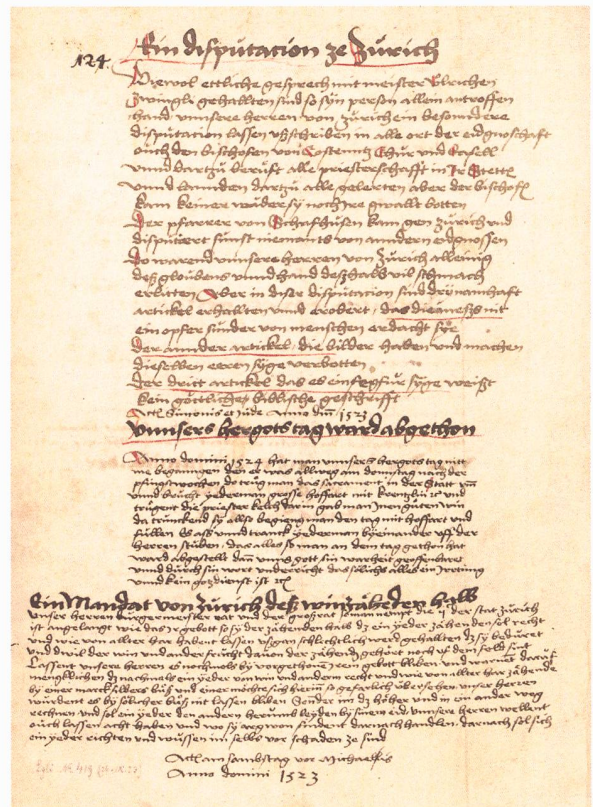 124.
Ein disputacion ze Zürich
Wiewol ettliche gesprech mit meister Ulrichen
Zwingli gehallten sind so syn person allein antroffen
hand unnsere herren von Zürich ein besondere
disputation lassen ußschriben in alle ort der eidgnoschaft
ouch den bischofen von Costenntz Chur und Basell
unnd dartzu berüft alle priesterschafft in Ir Stett
unnd dartzu alle geleerten aber der bischof
kam keiner wüder sy noch ire gwallt botten
Der pfarrer von Schafhüsen kam gen Zürich und
disputiert sunst niemants von anndern eidgnossen
Do warend unnsere herren von Zürich alleinig
deß gloubens unnd hand deßhalb vil schmach
erlitten Aber in diser disputacion sind dry namhaft
artickel erhallten unnd erobert, das die mesß nit
ein opfer sunder von menschen erdacht sye
Der annder artickel, die bilder haben und machen
dieselben eeren syge verbotten
Der dritt artickel das es ein fegfür syge weißt
kein göttliche biblische geschrifft
Actt Simonis et Jude Anno dni 1523
Unnsers hergots tag ward abgethon
Anno domini 1524 hat man unnsers hergots tag nitt
me begannngen den er was allweg am donnstag nach der
pfingstwochen do trug man das sacrament in der statt um
unnd brucht yederman grosse hoffart mit krentzlin ec und
trugent die priester kelch darin gab man Inen guten win
da trunckend sy allso begieng man den tag mit hoffart und
füllen Es asß unnd tranck yederman by einander uff der
herren stuben, das alles so man an dem tag gethon hat
ward abgestellt dann unns gott sin warheit geoffenbaret
unnd durch sin wort underricht das sölichs alles ein irttung
unnd kein gotzdienst ist ec
Ein Mandat von Zürich deß winzähenden halb
Unser herren burgermeister rat und der groß rat so man nempt die ii c der stat zürich
ist angelangt wie das gebot so sy der zähenden halb dz ein yeder zähenden sol recht
und wie von allter har haben lassen ußgan schlechtlich werd gehallten dz sy beduret
und diwil der win und ander frücht davon der zähend gehört noch uf dem feld sind
Lassent unsere herren es nochmals by vorgethonem irem gebot bliben und warnet daruf
mengklichen dz nachmals ein yeder von win und anderm recht und wie von allter har zähende
by einer marck silbers büß und einer möchte sich hierin so gefarlich übersehen unser herren
würdent es by sölicher büß nit lassen bliben Sonder im dz höher und in ein ander weg
rechnen und sol ein yeder den andern hierumb leyden by sinem eid unsere herren wellent
ouch lassen acht haben und wo sy argwon findent darnach handlen, darnach sol sich
ein yeder richten und wüssen im selbs vor schaden ze sind
Actt am sambstag vor Michaelis
Anno domini 1523